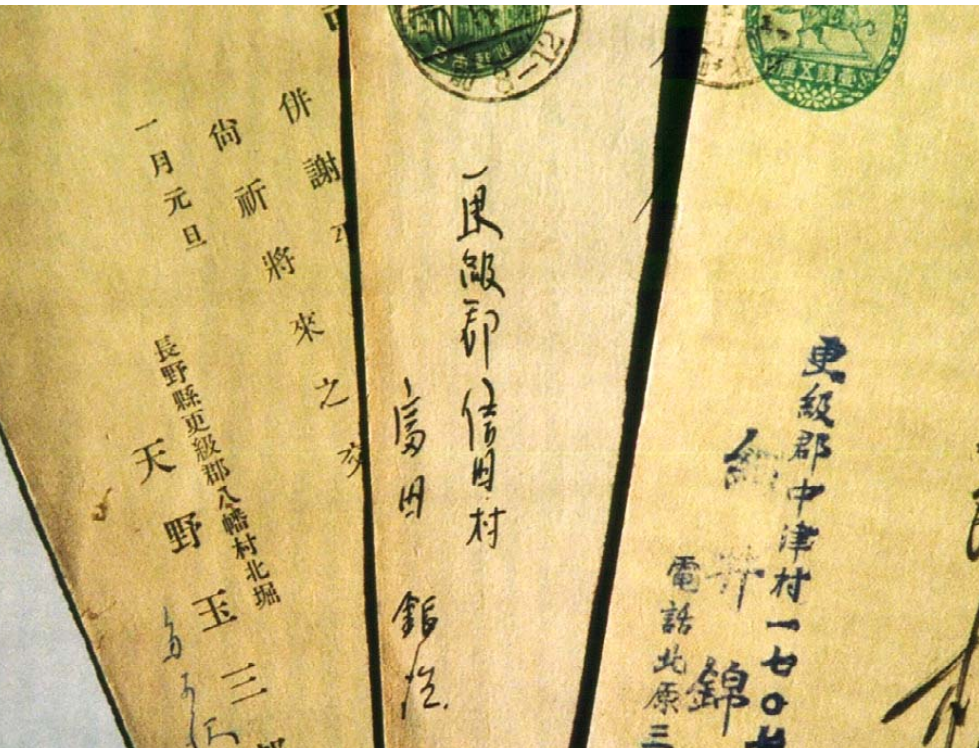 併謝
尙祈將來之交
一月元旦
長野縣更級郡八幡村北堀
天野玉三郎
8-12
更級郡信田村
富田
壹錢五厘
更級郡中津村一七〇
電話北原三
井錦